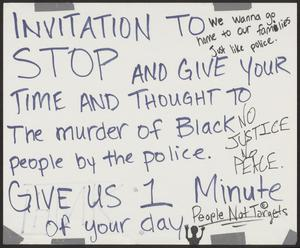 INVITATION TO
We wanna go
home to our families
Just like police.
STOP AND GIVE YOUR
TIME AND THOUGHT TO
The murder of Black
people by the police.
NO
JUSTICE
NO
PEACE.
GIVE US 1 Minute
of your day
People Not Targets